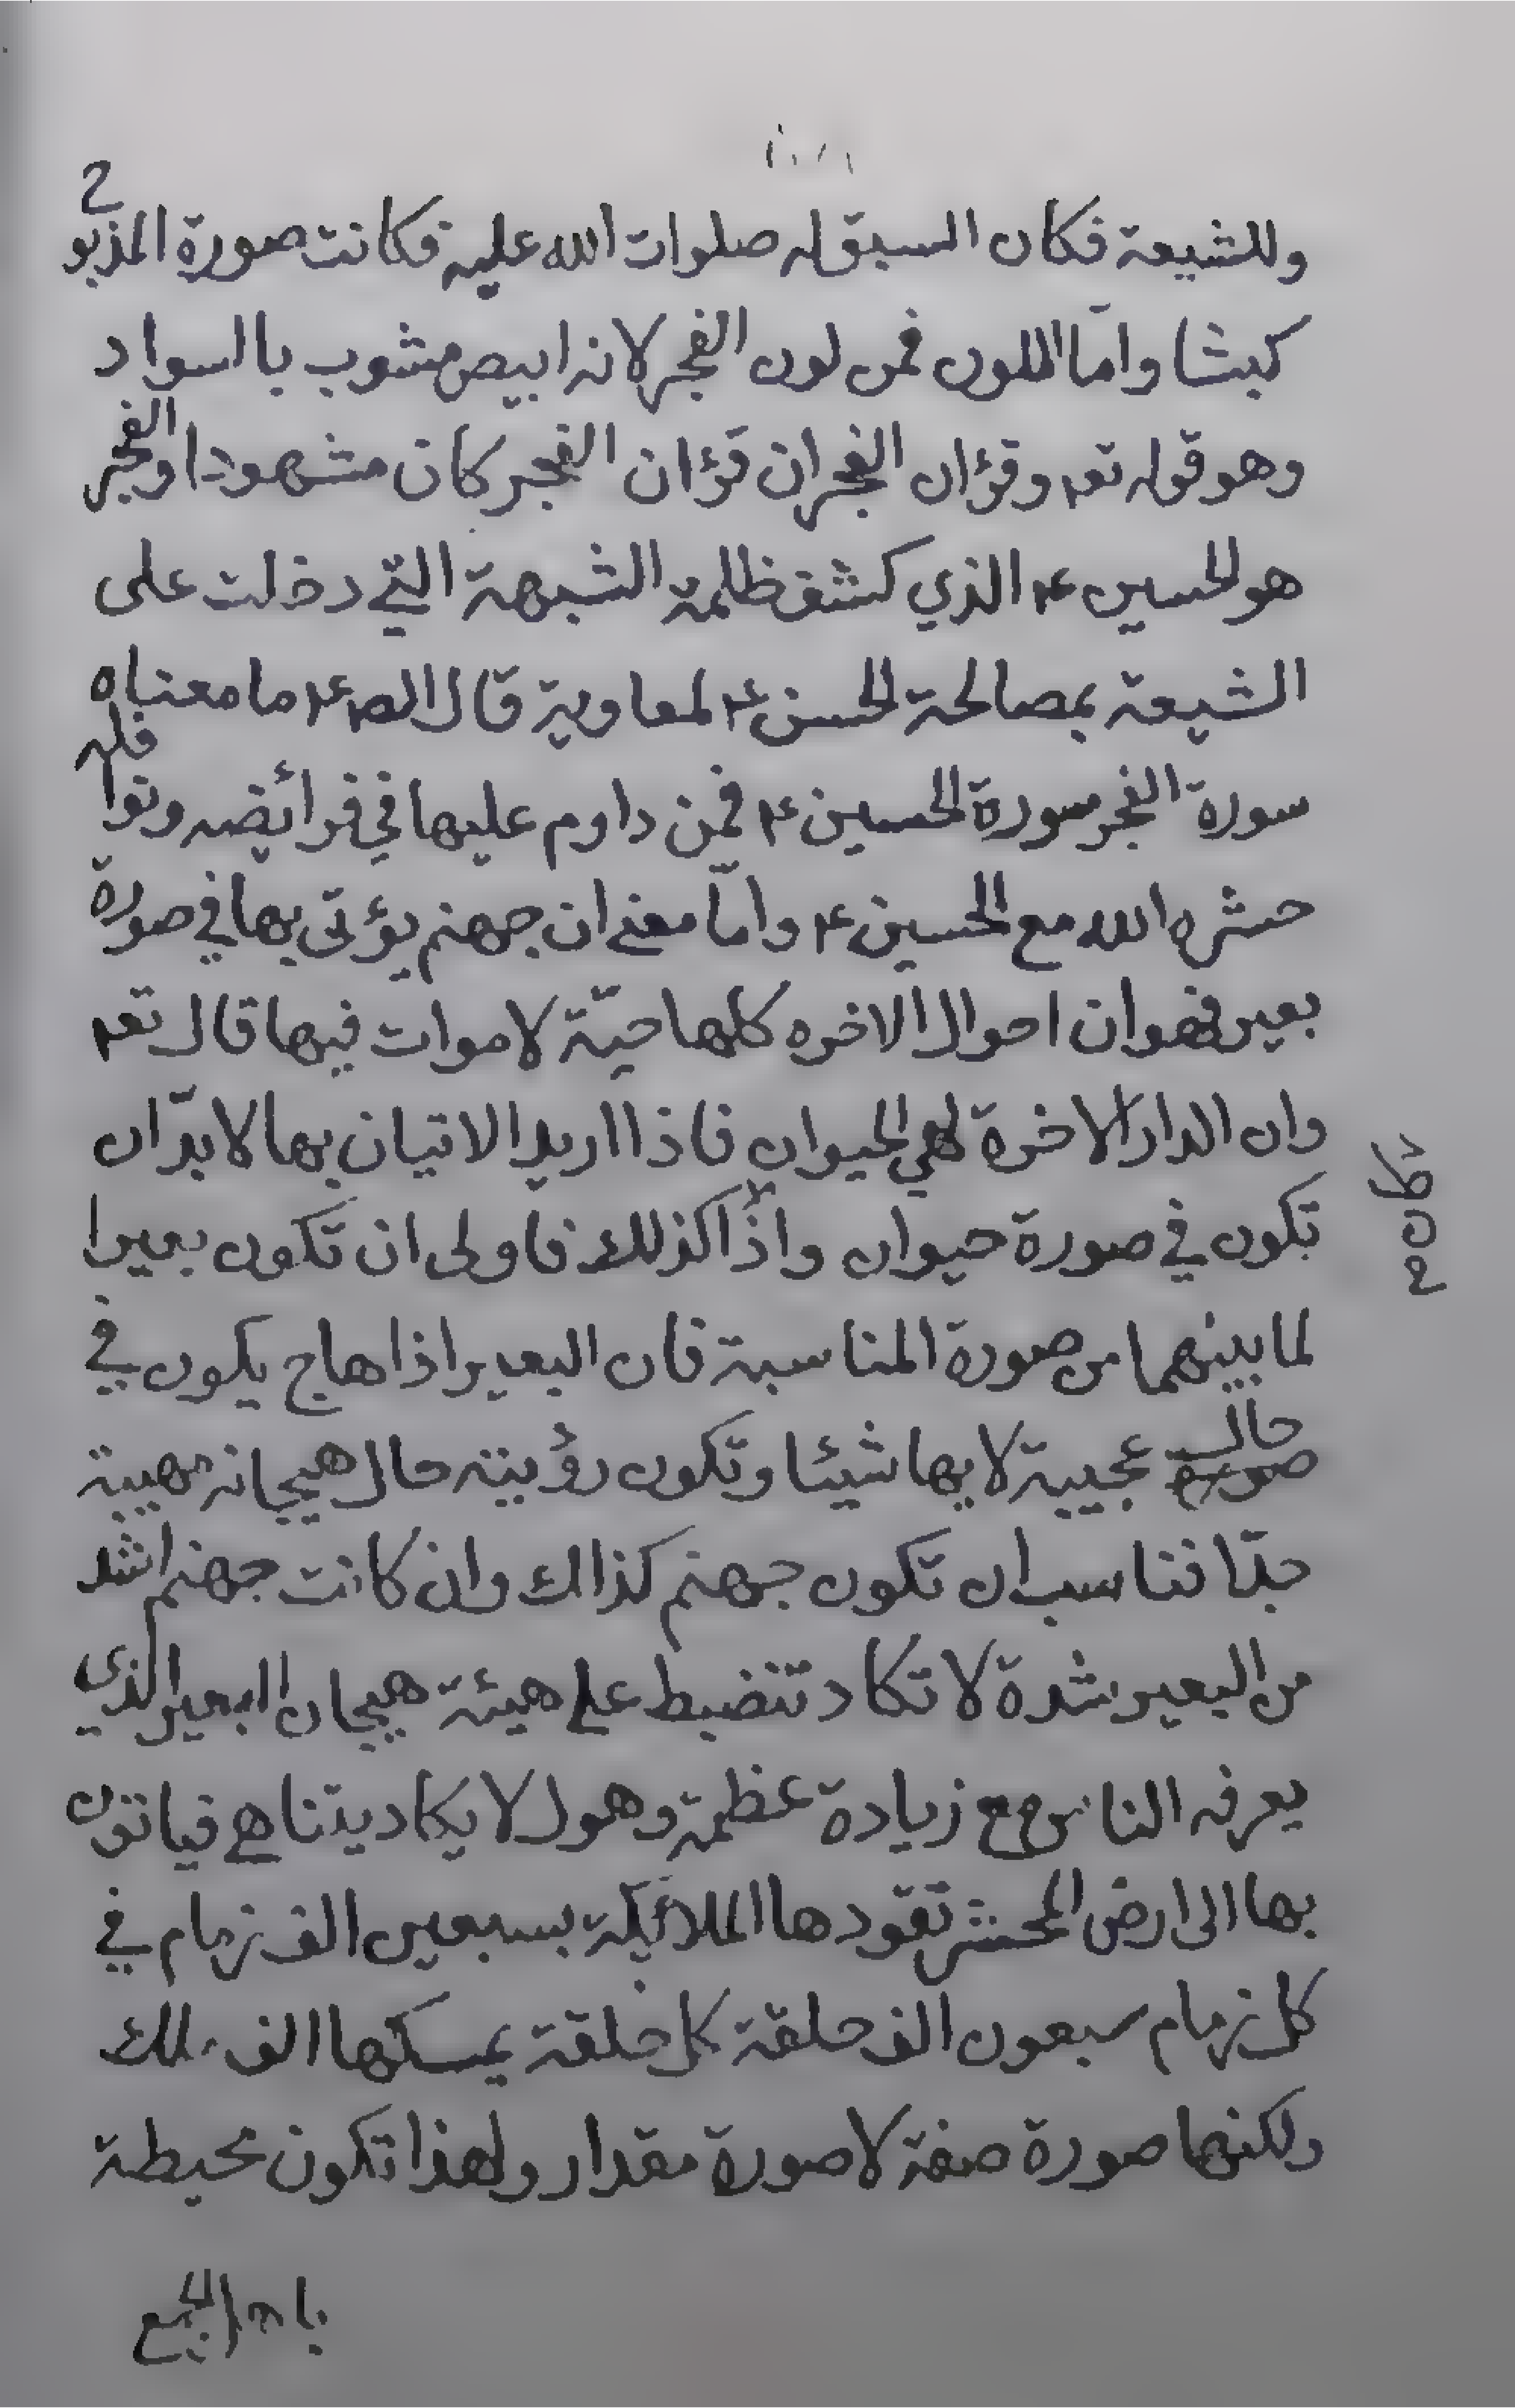 وللشيعة فكان السبق له صلوات الله عليه فكانت صورة المذبو
ح
كبشا وامّا اللون فمن لون الفجر لانه ابيض مشوب بااسواد
وهو قوله تعم وقرٔان الفجر ان قرٔان الفجر كان مشهودا والفجر
هو الحسين ع الذي كشف ظلمة الشبهة التي دخلت على
الشيعة بمصالحة الحسن ع لمعاوية قال الص ع ما معناه
سورة الفجر سورة الحسين ع فمن داوم عليها في فرائضه ونوافله
حشره الله مع الحسين ع وامّا معنى ان جهنم يؤتى بها في صورة
بعير فهو ان احوال الاخره كلها حيّة لا موات فيها قال تعم
وان الدار الاخرة لهي الحيوان فاذا اريد الاتيان بها لا بدّ ان
تكون في صورة حيوان واذا كذلك فاولى ان تكون بعيرا
كان
لما بينهما من صورة المناسبة فان البعير اذا هاج يكون في
حالة
عجيبة لا يها شيئا وتكون رؤيته حال هيجانه مهيبة
جدّا فناسب ان تكون جهنم كذالك وان كانت جهنم اشد
من البعير بشدة لا تكاد تنضبط على هيئة هيجان البعير الذي
يعرفه الناس مع زيادة عظمة وهول لا يكاد يتناهى فياتون
بها الى ارض المحشر تقودها الملائكة بسبعين الف زمام في
كل زمام سبعون الف حلقة كل حلقة يمسكها الف ملك
ولكنها صورة صفة لا صورة مقدار ولهذا تكون محيطة
باهل الجمع